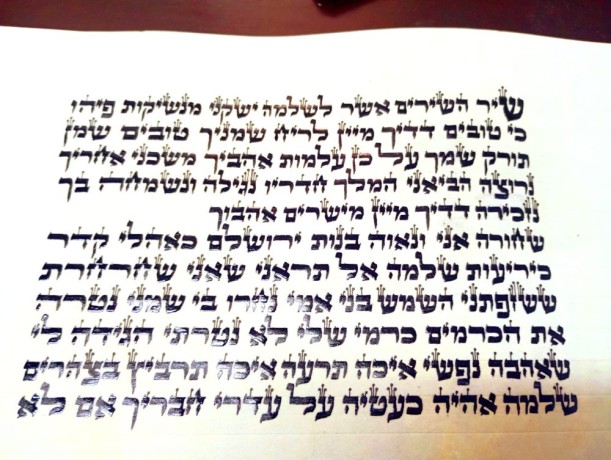 שיר השירים אשר לשלמה ישקני מנשיקות פיהו
כי טובים דדיך מיין לריח שמניך טובים שמן
תורק שמך על כן עלמות אהביך משכני אחריך
נרוצה הביאני המלך חדריו נגילה ונשמחה בך
נזכירה דדיך מיין מישרים אהבוך
שחורה אני ונאוה בנות ירושלם כאהלי קדר
כיריעות שלמה אל תראני שאני שחרחרת
ששזפתני השמש בני אמי נחרו בי שמני נטרה
את הכרמים כרמי שלי לא נטרתי הגידה לי
שאהבה נפשי איכה תרעה איכה תרביץ בצהרים
שלמה אהיה כעטיה על עדרי חבריך אם לא